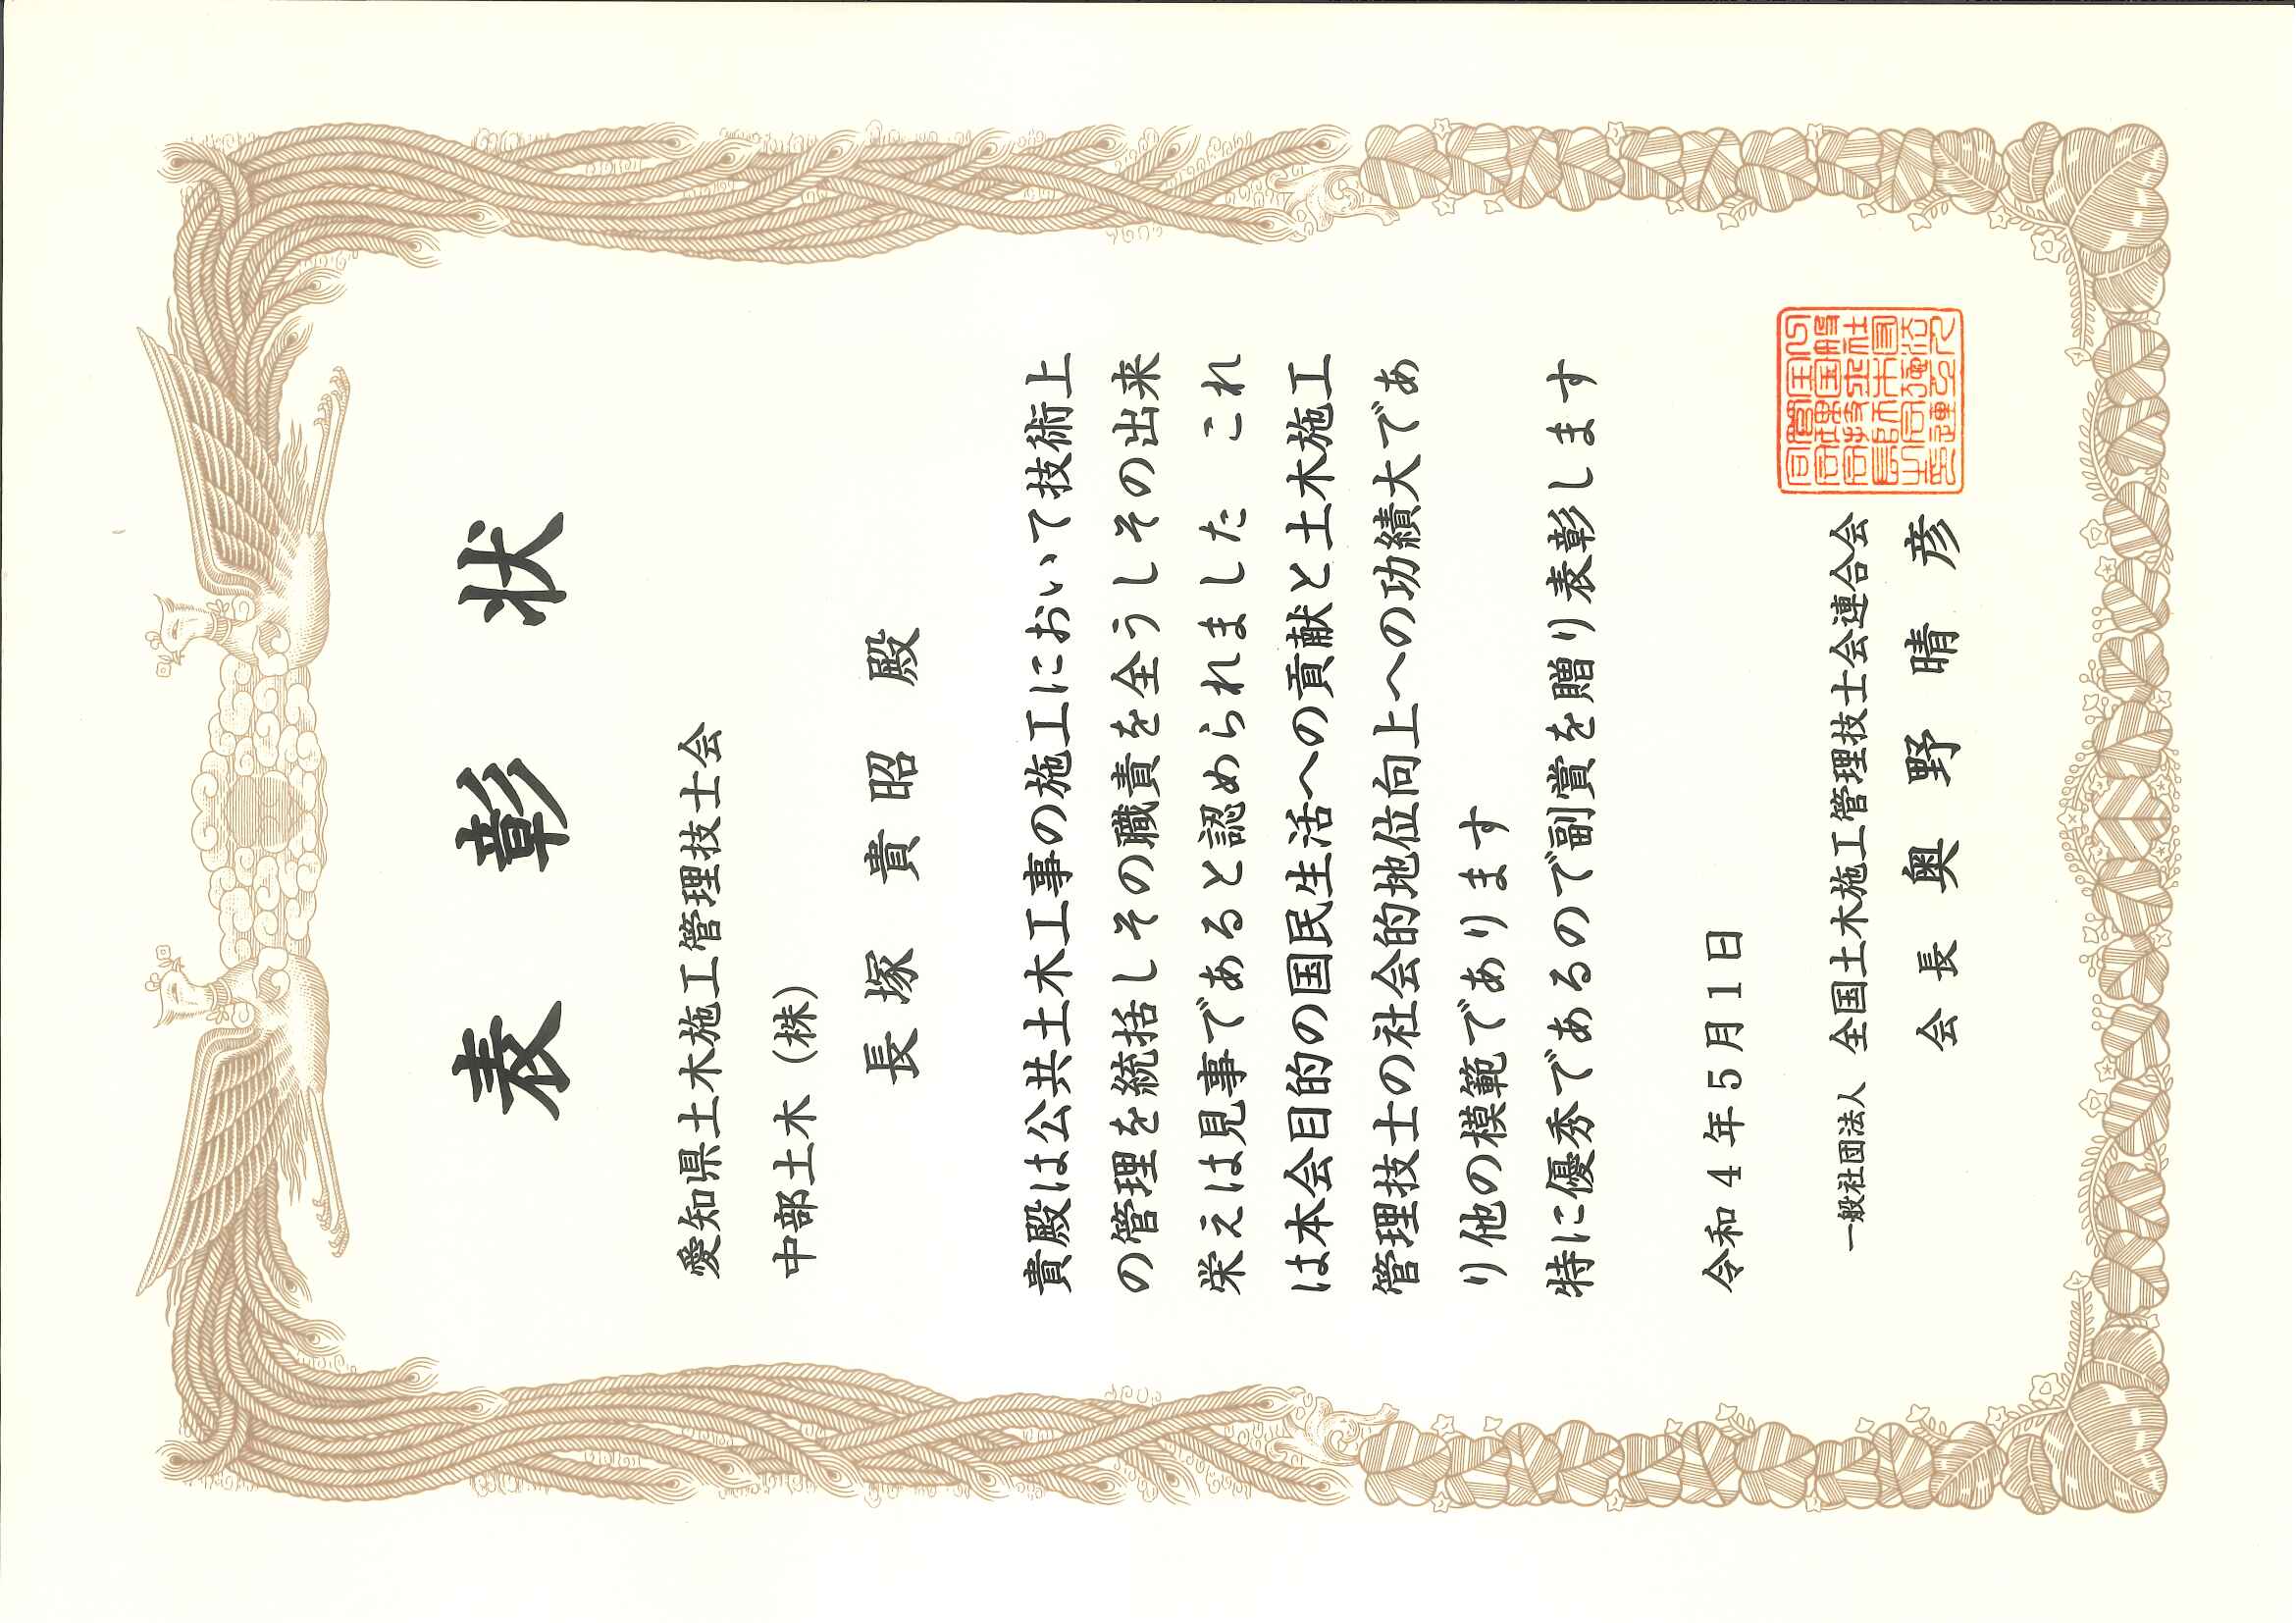 表彰状
愛知県土木施工管理技士会
中部土木（株）
長塚貴昭殿
貴殿は公共土木工事の施工において技術上
の管理を統括しその職責を全うしその出来
栄えは見事であると認められました　これ
は本会目的の国民生活への貢献と土木施工
管理技士の社会的地位向上への功績大であ
り他の模範であります
特に優秀であるので副賞を贈り表彰します
令和４年５月１日
一般社団法人 全国土木施工管理技士会連合会
会長 奥野晴彦